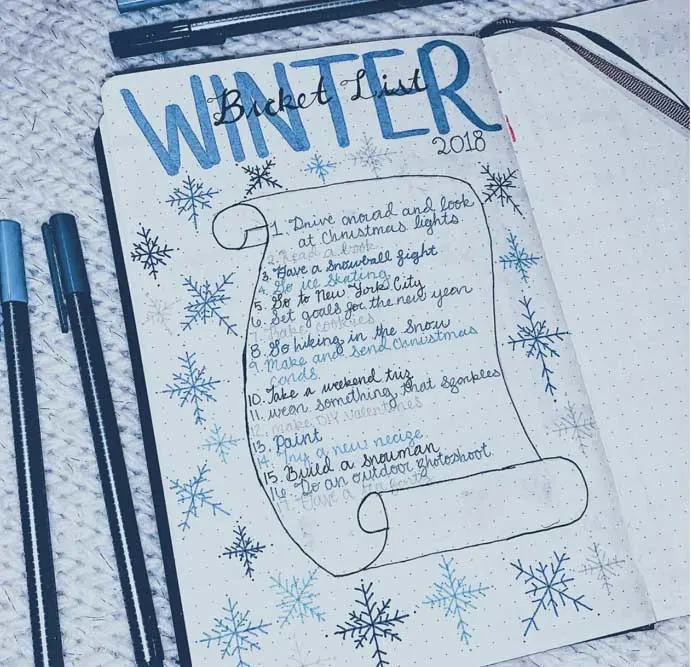 WINTER
Bucket List
2018
1. Drive around and look
at Christmas lights
2. Read a book
3. Have a snowball fight
4. Go ice skating
5. Go to New York City
6. Set goals for the new year
7. Make cookies
8. Go hiking in the snow
9. Make and send Christmas
cards
10. Take a weekend trip
11. wear something that sparkles
12. make DIY valentines
13. Paint
14. Try a new recipe
15. Build a snowman
16. Do an outdoor photoshoot
17. Have a